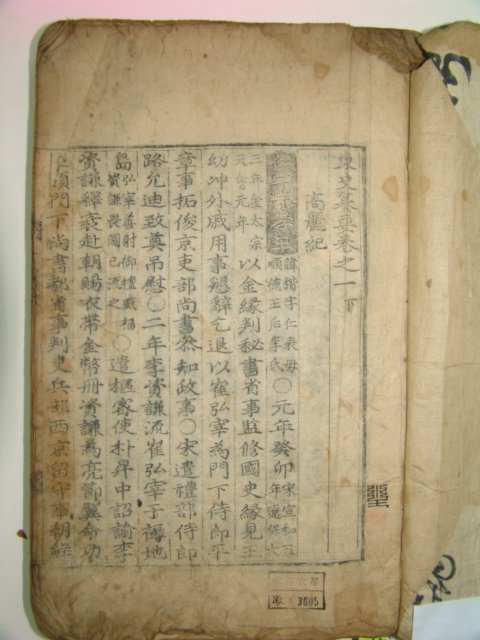 東史纂要卷之一下
高麗紀
諱楷字仁表母順德王后李氏○元年癸卯宋宣和五年遼保大
三年金太宗天會元年以金緣判秘書省事監修國史緣見王
幼冲外戚用事懇辭乞退以崔弘宰爲門下侍郎平
章事拓俊京吏部尚書叅知政事○宋遣禮部侍郎
路允迪致奠吊慰○二年李資謙流崔弘宰于褥地
島弘宰善射御擅威福資謙畏圖己流之○遣樞密使朴昇中詔諭李
資謙釋衰赴朝賜衣帶金幣冊資謙為亮節翼命功
臣領門下尚書都省事判吏兵部西京留守事朝鮮
3605